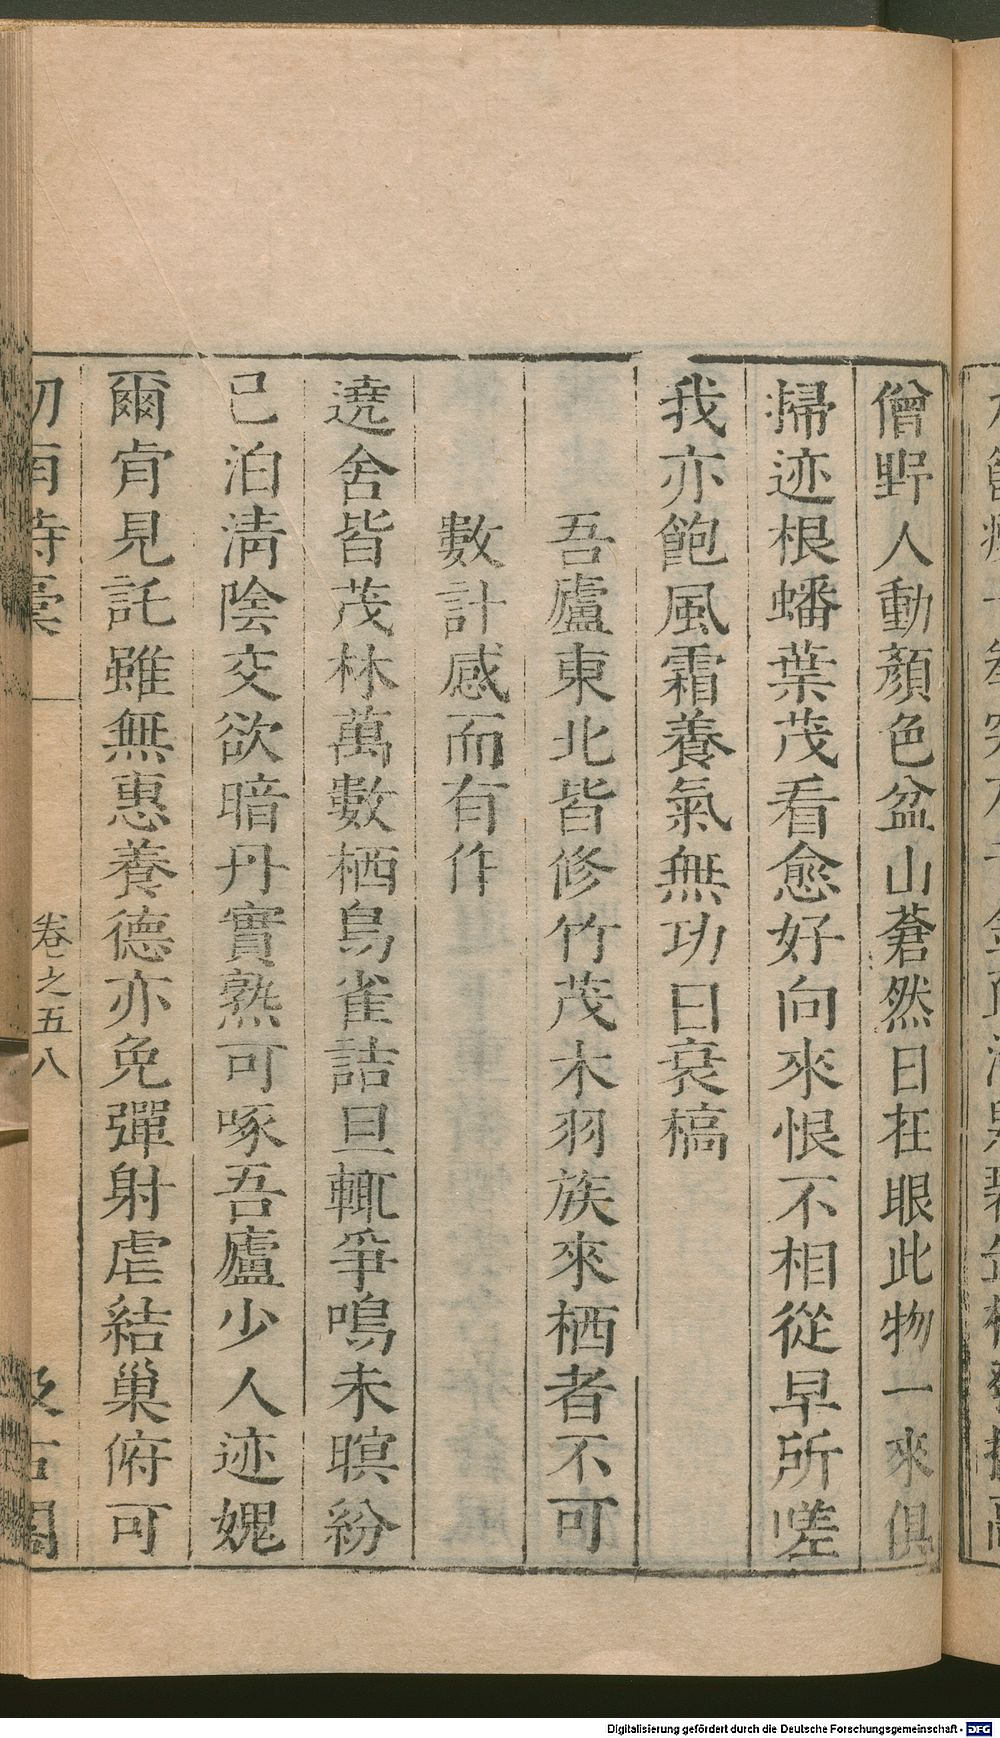 僧野人動顏色盆山蒼然日在眼此物一來俱
掃迹根蟠葉茂看愈好向來恨不相從早所嗟
我亦飽風霜養氣無功日衰槁
吾廬東北皆修竹茂木羽族來栖者不可
數計感而有作
遶舍皆茂林萬數栖鳥雀詰旦輒爭鳴未暝紛
已泊淸陰交欲暗丹實熟可啄吾廬少人迹媿
爾肯見託雖無惠養德亦免彈射虐結巢俯可
卷之五
八
汲古閣
Digitalisierung gefördert durch die Deutsche Forschungsgemeinschaft - DFG